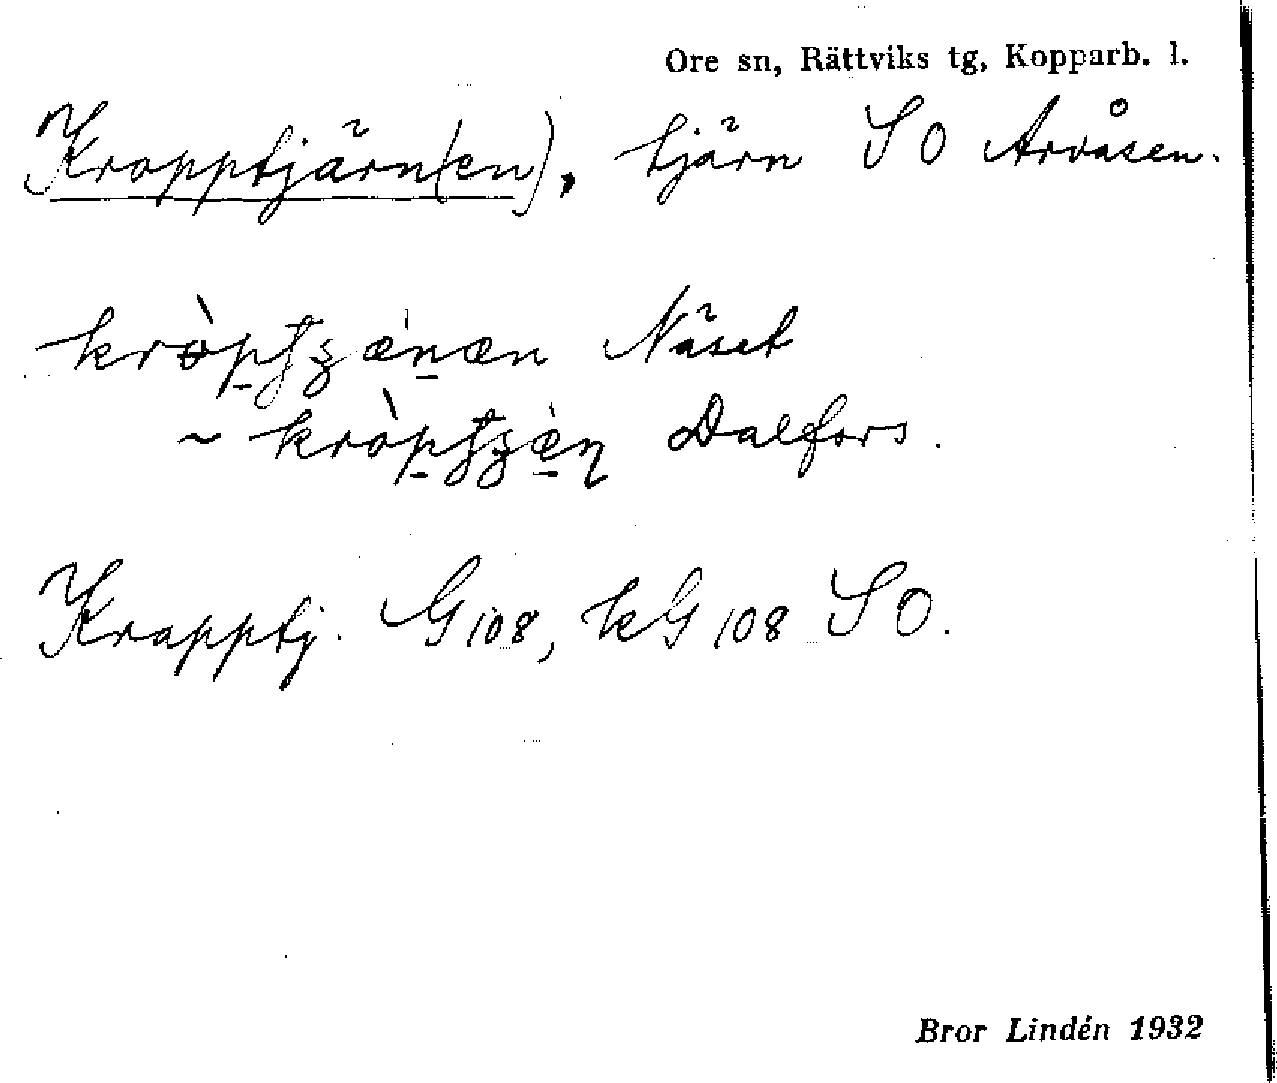 Ore sn, Rättviks tg, Kopparb. l.
Kropptjärn(en), tjärn SO Arvåsen.
Näset
~ Dalfors.
Krapptj. G 108, kG 108 SO.
Bror Lindén 1932